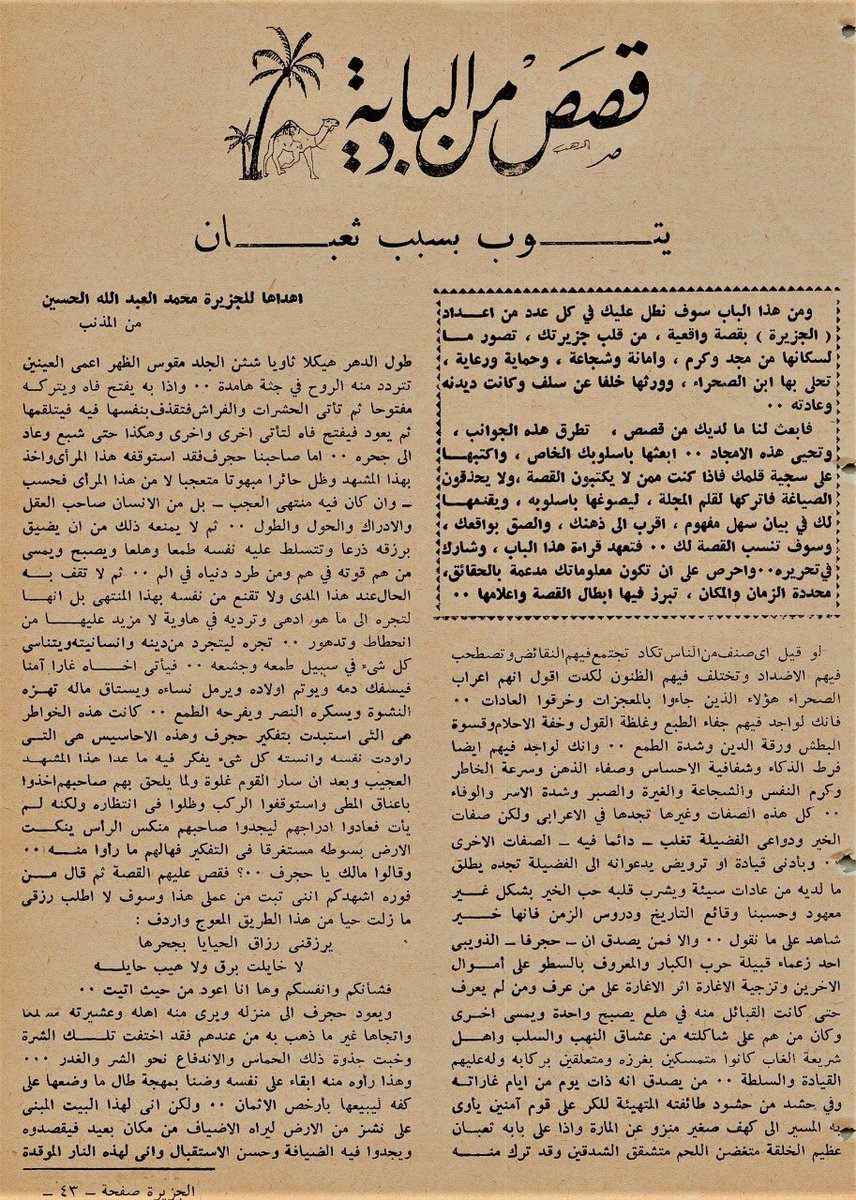 قصص من البادية
يتوب بسبب ثعبان
ومن هذا الباب سوف نطل عليك في كل عدد من اعداد
( الجزيرة ) بقصة واقعية ، من قلب جزيرتك ، تصور ما
لسكانها من مجد وكرم ، وامانة وشجاعة ، وحماية ورعاية ،
تحلى بها ابن الصحراء ، وورثها خلفا عن سلف وكانت ديدنه
وعادته ٠٠
فابعث لنا ما لديك من قصص ، تطرق هذه الجوانب ،
وتحيى هذه الامجاد ٠٠ ابعثها باسلوبك الخاص ، واكتبها
على سجية قلمك فاذا كنت ممن لا يكتبون القصة ،ولا يحذقون
الصياغة فاتركها لقلم المجلة ، ليصوغها باسلوبه ، ويقدمها
لك في بيان سهل مفهوم ، اقرب الى ذهنك ، والصق بواقعك ،
وسوف تنسب القصة لك ٠٠ فتعهد قراءة هذا الباب ، وشارك
في تحريره٠٠واحرص على ان تكون معلوماتك مدعمة بالحقائق،
محددة الزمان والمكان ، تبرز فيها ابطال القصة واعلامها ٠٠
لو قيل اى صنف من الناس تكاد تجتمع فيهم النقائض وتصطحب
فيهم الاضداد وتختلف فيهم الظنون لكدت اقول انهم اعراب
الصحراء هؤلاء الذين جاءوا بالمعجزات وخرقوا العادات ٠٠
فانك لواجد فيهم جفاء الطبع وغلظة القول وخفة الاحلام وقسوة
البطش ورقة الدين وشدة الطمع ٠٠ وانك لواجد فيهم ايضا
فرط الذكاء وشفافية الاحساس وصفاء الذهن وسرعة الخاطر
وكرم النفس والشجاعة والغيرة والصبر وشدة الاسر والوفاء
٠٠ كل هذه الصفات وغيرها تجدها في الاعرابى ولكن صفات
الخير ودواعى الفضيلة تغلب ــ دائما فيه ــ الصفات الاخرى
٠٠ وبأدنى قيادة او ترويض يدعوانه الى الفضيلة تجده يطلق
ما لديه من عادات سيئة ويشرب قلبه حب الخير بشكل غير
معهود وحسبنا وقائع التاريخ ودروس الزمن فانها خير
شاهد على ما نقول ٠٠ والا فمن يصدق ان ــ حجرفا ــ الذويبى
احد زعماء قبيلة حرب الكبار والمعروف بالسطو على أموال
الاخرين وتزجية الاغارة اثر الاغارة على من عرف ومن لم يعرف
حتى كانت القبائل منه في هلع يصبح واحدة ويمسى اخرى
وكان من هم على شاكلته من عشاق النهب والسلب واهل
شريعة الغاب كانوا متمسكين بغرزه ومتعلقين بركابه وله عليهم
القيادة والسلطة ٠٠ من يصدق انه ذات يوم من ايام غاراته
وفي حشد من حشود طائفته المتهيئة للكر على قوم آمنين يأوى
به المسير الى كهف صغير منزو عن المارة واذا على بابه ثعبان
عظيم الخلقة متغضن اللحم متشقق الشدقين وقد ترك منه
اهداها للجزيرة محمد العبد الله الحسين
من المذنب
طول الدهر هيكلا ثاويا شثن الجلد مقوس الظهر اعمى العينين
تتردد منه الروح في جثة هامدة ٠٠ واذا به يفتح فاه ويتركه
مفتوحا ثم تأتى الحشرات والفراش فتقذف بنفسها فيه فيتلقمها
ثم يعود فيفتح فاه لتأتى اخرى واخرى وهكذا حتى شبع وعاد
الى جحره ٠٠ اما صاحبنا حجرف فقد استوقفه هذا المرأى واخذ
بهذا المشهد وظل حائرا مبهوتا متعجبا لا من هذا المرأى فحسب
ــ وان كان فيه منتهى العجب ــ بل من الانسان صاحب العقل
والادراك والحول والطول ٠٠ ثم لا يمنعه ذلك من ان يضيق
برزقه ذرعا وتتسلط عليه نفسه طمعا وهلعا ويصبح ويمسى
من هم قوته في هم ومن طرد دنياه في الم ٠٠ ثم لا تقف به
الحال عند هذا المدى ولا تقنع من نفسه بهذا المنتهى بل انها
لتجره الى ما هو ادهى وترديه في هاوية لا مزيد عليها من
انحطاط وتدهور ٠٠ تجره ليتجرد من دينه وانسانيته ويتناسى
كل شىء في سبيل طمعه وجشعه ٠٠ فيأتى اخاه غارا آمنا
فيسفك دمه ويوتم اولاده ويرمل نساءه ويستاق ماله تهزه
النشوة ويسكره النصر ويفرحه الطمع ٠٠ كانت هذه الخواطر
هى التى استبدت بتفكير حجرف وهذه الاحاسيس هى التى
راودت نفسه وانسته كل شىء يفكر فيه ما عدا هذا المشهد
العجيب وبعد ان سار القوم غلوة ولما يلحق بهم صاحبهم اخذوا
باعناق المطى واستوقفوا الركب وظلوا في انتظاره ولكنه لم
يأت فعادوا ادراجهم ليجدوا صاحبهم منكس الرأس ينكت
الارض بسوطه مستغرقا في التفكير فهالهم ما رأوا منه ٠٠
وقالوا مالك يا حجرف ٠٠؟ فقص عليهم القصة ثم قال من
فوره اشهدكم اننى تبت من عملى هذا وسوف لا اطلب رزقى
ما زلت حيا من هذا الطريق المعوج واردف :
يرزقنى رزاق الحيايا بجحرها
لا خايلت برق ولا هيب حايله
فشأنكم وانفسكم وها انا اعود من حيث اتيت ٠٠
ويعود حجرف الى منزله ويرى منه اهله وعشيرته مسلكا
واتجاها غير ما ذهب به من عندهم فقد اختفت تلك الشرة
وخبت جذوة ذلك الحماس والاندفاع نحو الشر والغدر ٠٠٠
وهذا رأوه منه ابقاء على نفسه وضنا بمهجة طال ما وضعها على
كفه ليبيعها بأرخص الاثمان ٠٠ ولكن انى لهذا البيت المبنى
على نشز من الارض ليراه الاضياف من مكان بعيد فيقصدوه
ويجدوا فيه الضيافة وحسن الاستقبال وانى لهذه النار الموقدة
الجزيرة صفحة ــ ٤٣ ــ